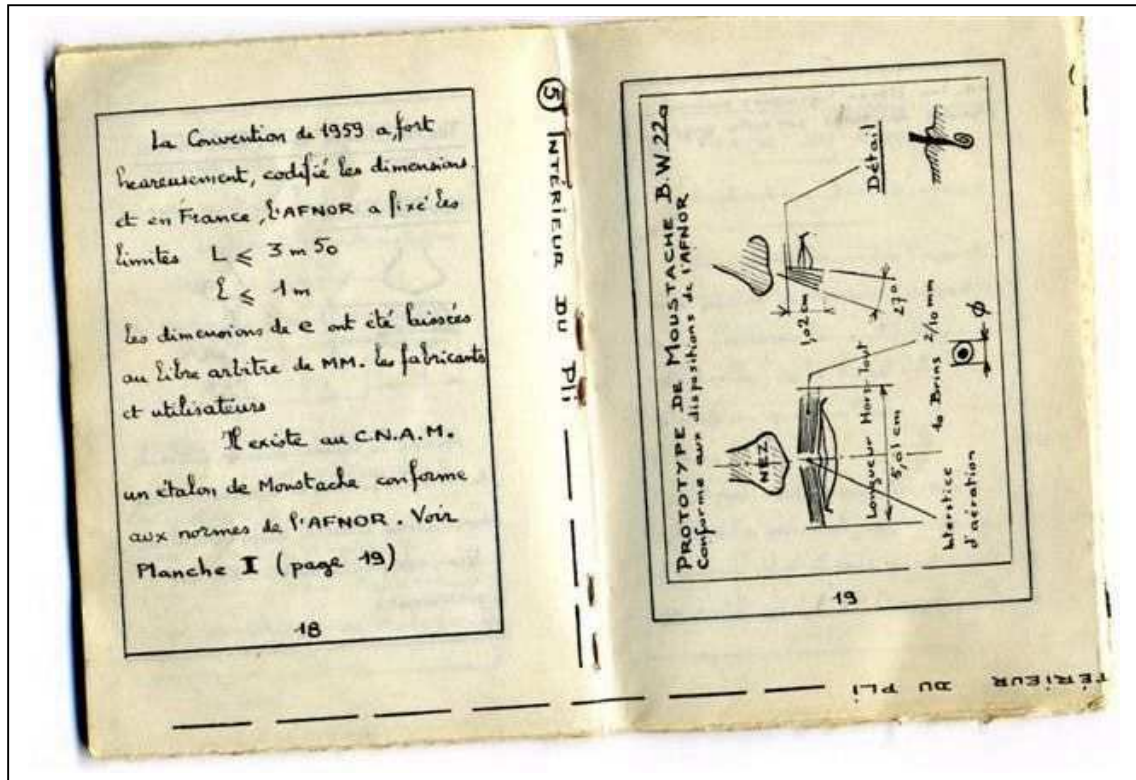 La Convention de 1959 a, fort
heureusement, codifié les dimensions
et en France, l'AFNOR a fixé les
limites L ⩽ 3 m 50
ℓ ⩽ 1 m
Les dimensions de e ont été laissées
au libre arbitre de MM. les fabricants
et utilisateurs
Il existe au C.N.A.M.
un étalon de Moustache conforme
aux normes de l'AFNOR. Voir
Planche I (page 19)
18
⑤ INTÉRIEUR DU Pli
PROTOTYPE DE MOUSTACHE B.W.22a
Conforme aux dispositions de l'AFNOR
NEZ
1,02 cm
27°
Détail
Longueur Hors-Tout
5,01 cm
10 Brins 2/10 mm
Φ
Interstice
d'aération
19
TÉRIEUR DU PLI